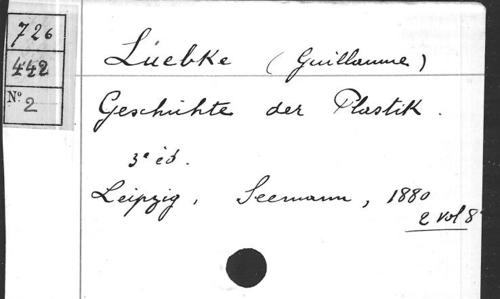 726
442
N.º 2
Lüebke (Guillaume)
Geschichte der Plastik.
3ª éd.
Leipzig, Seemann, 1880
2 vol 8º